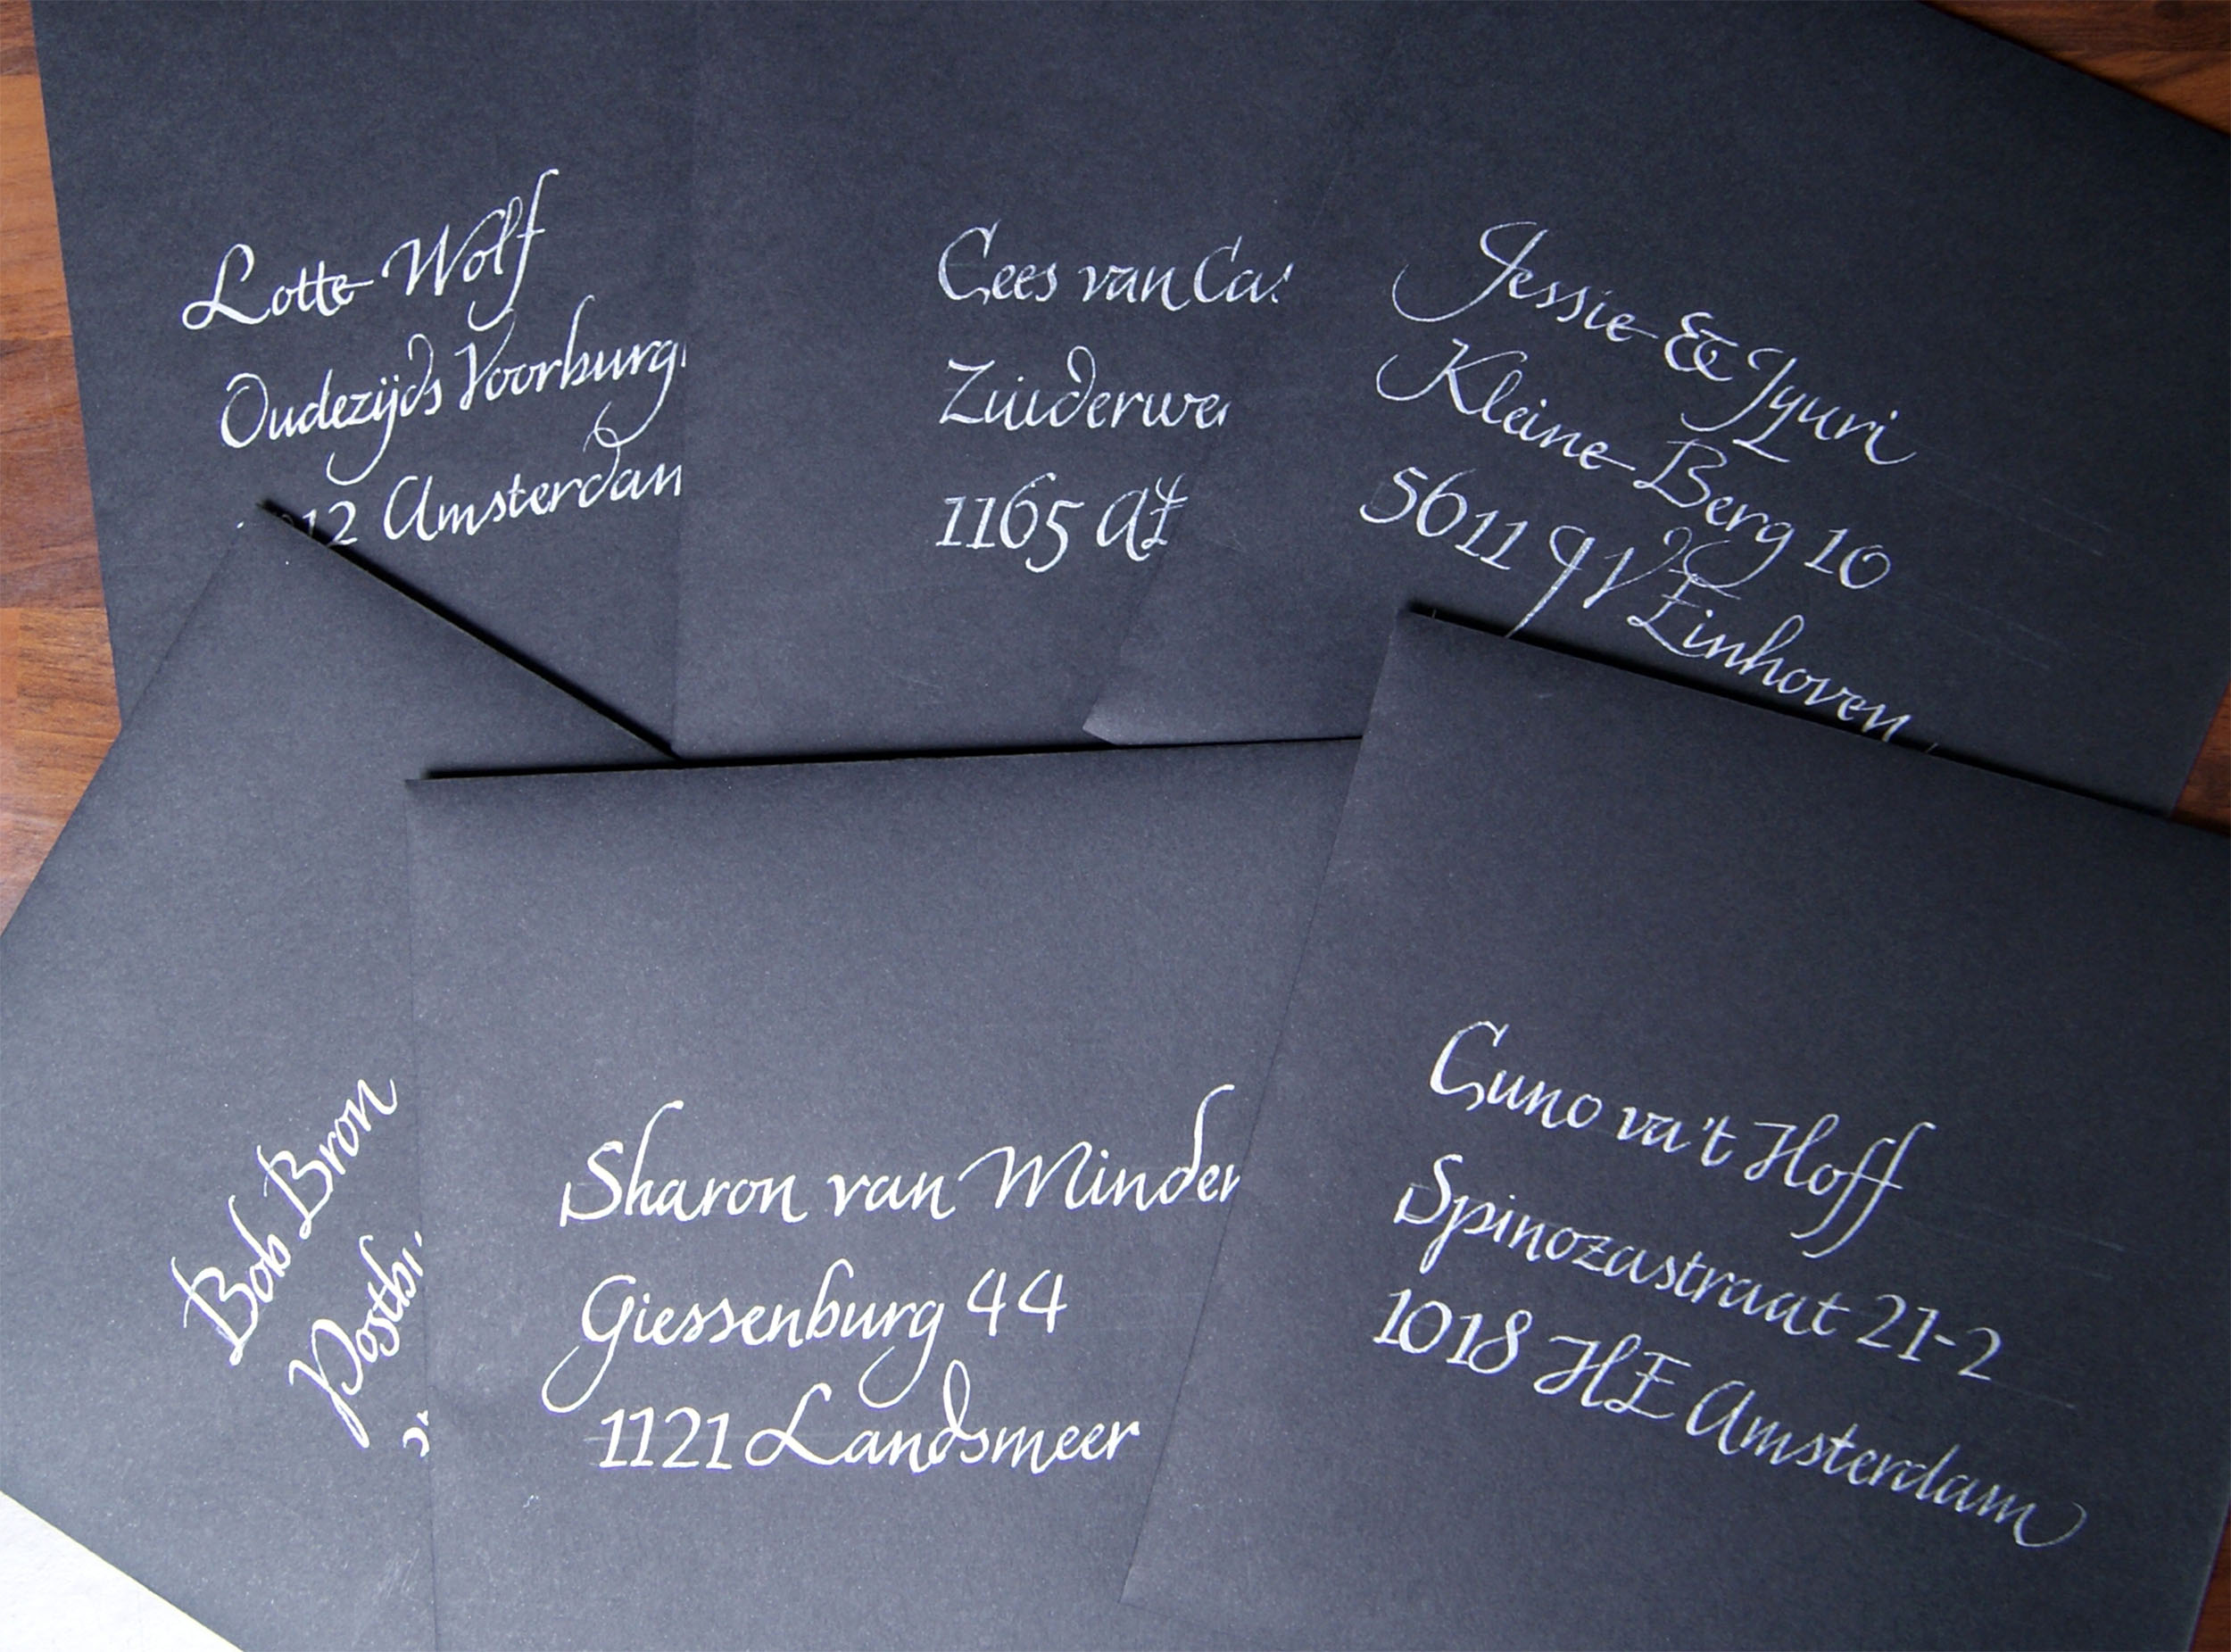 Lotte Wolf
Oudezijds Voorburg
12 Amsterdam
Cees van Cas
Zuiderwe
1165 AE
Jessie & Jyuri
Kleine Berg 10
5611 JV Einhoven
Bob Bron
Postb
Sharon van Minder
Giessenburg 44
1121 Landsmeer
Guno va't Hoff
Spinozastraat 21-2
1018 HE Amsterdam